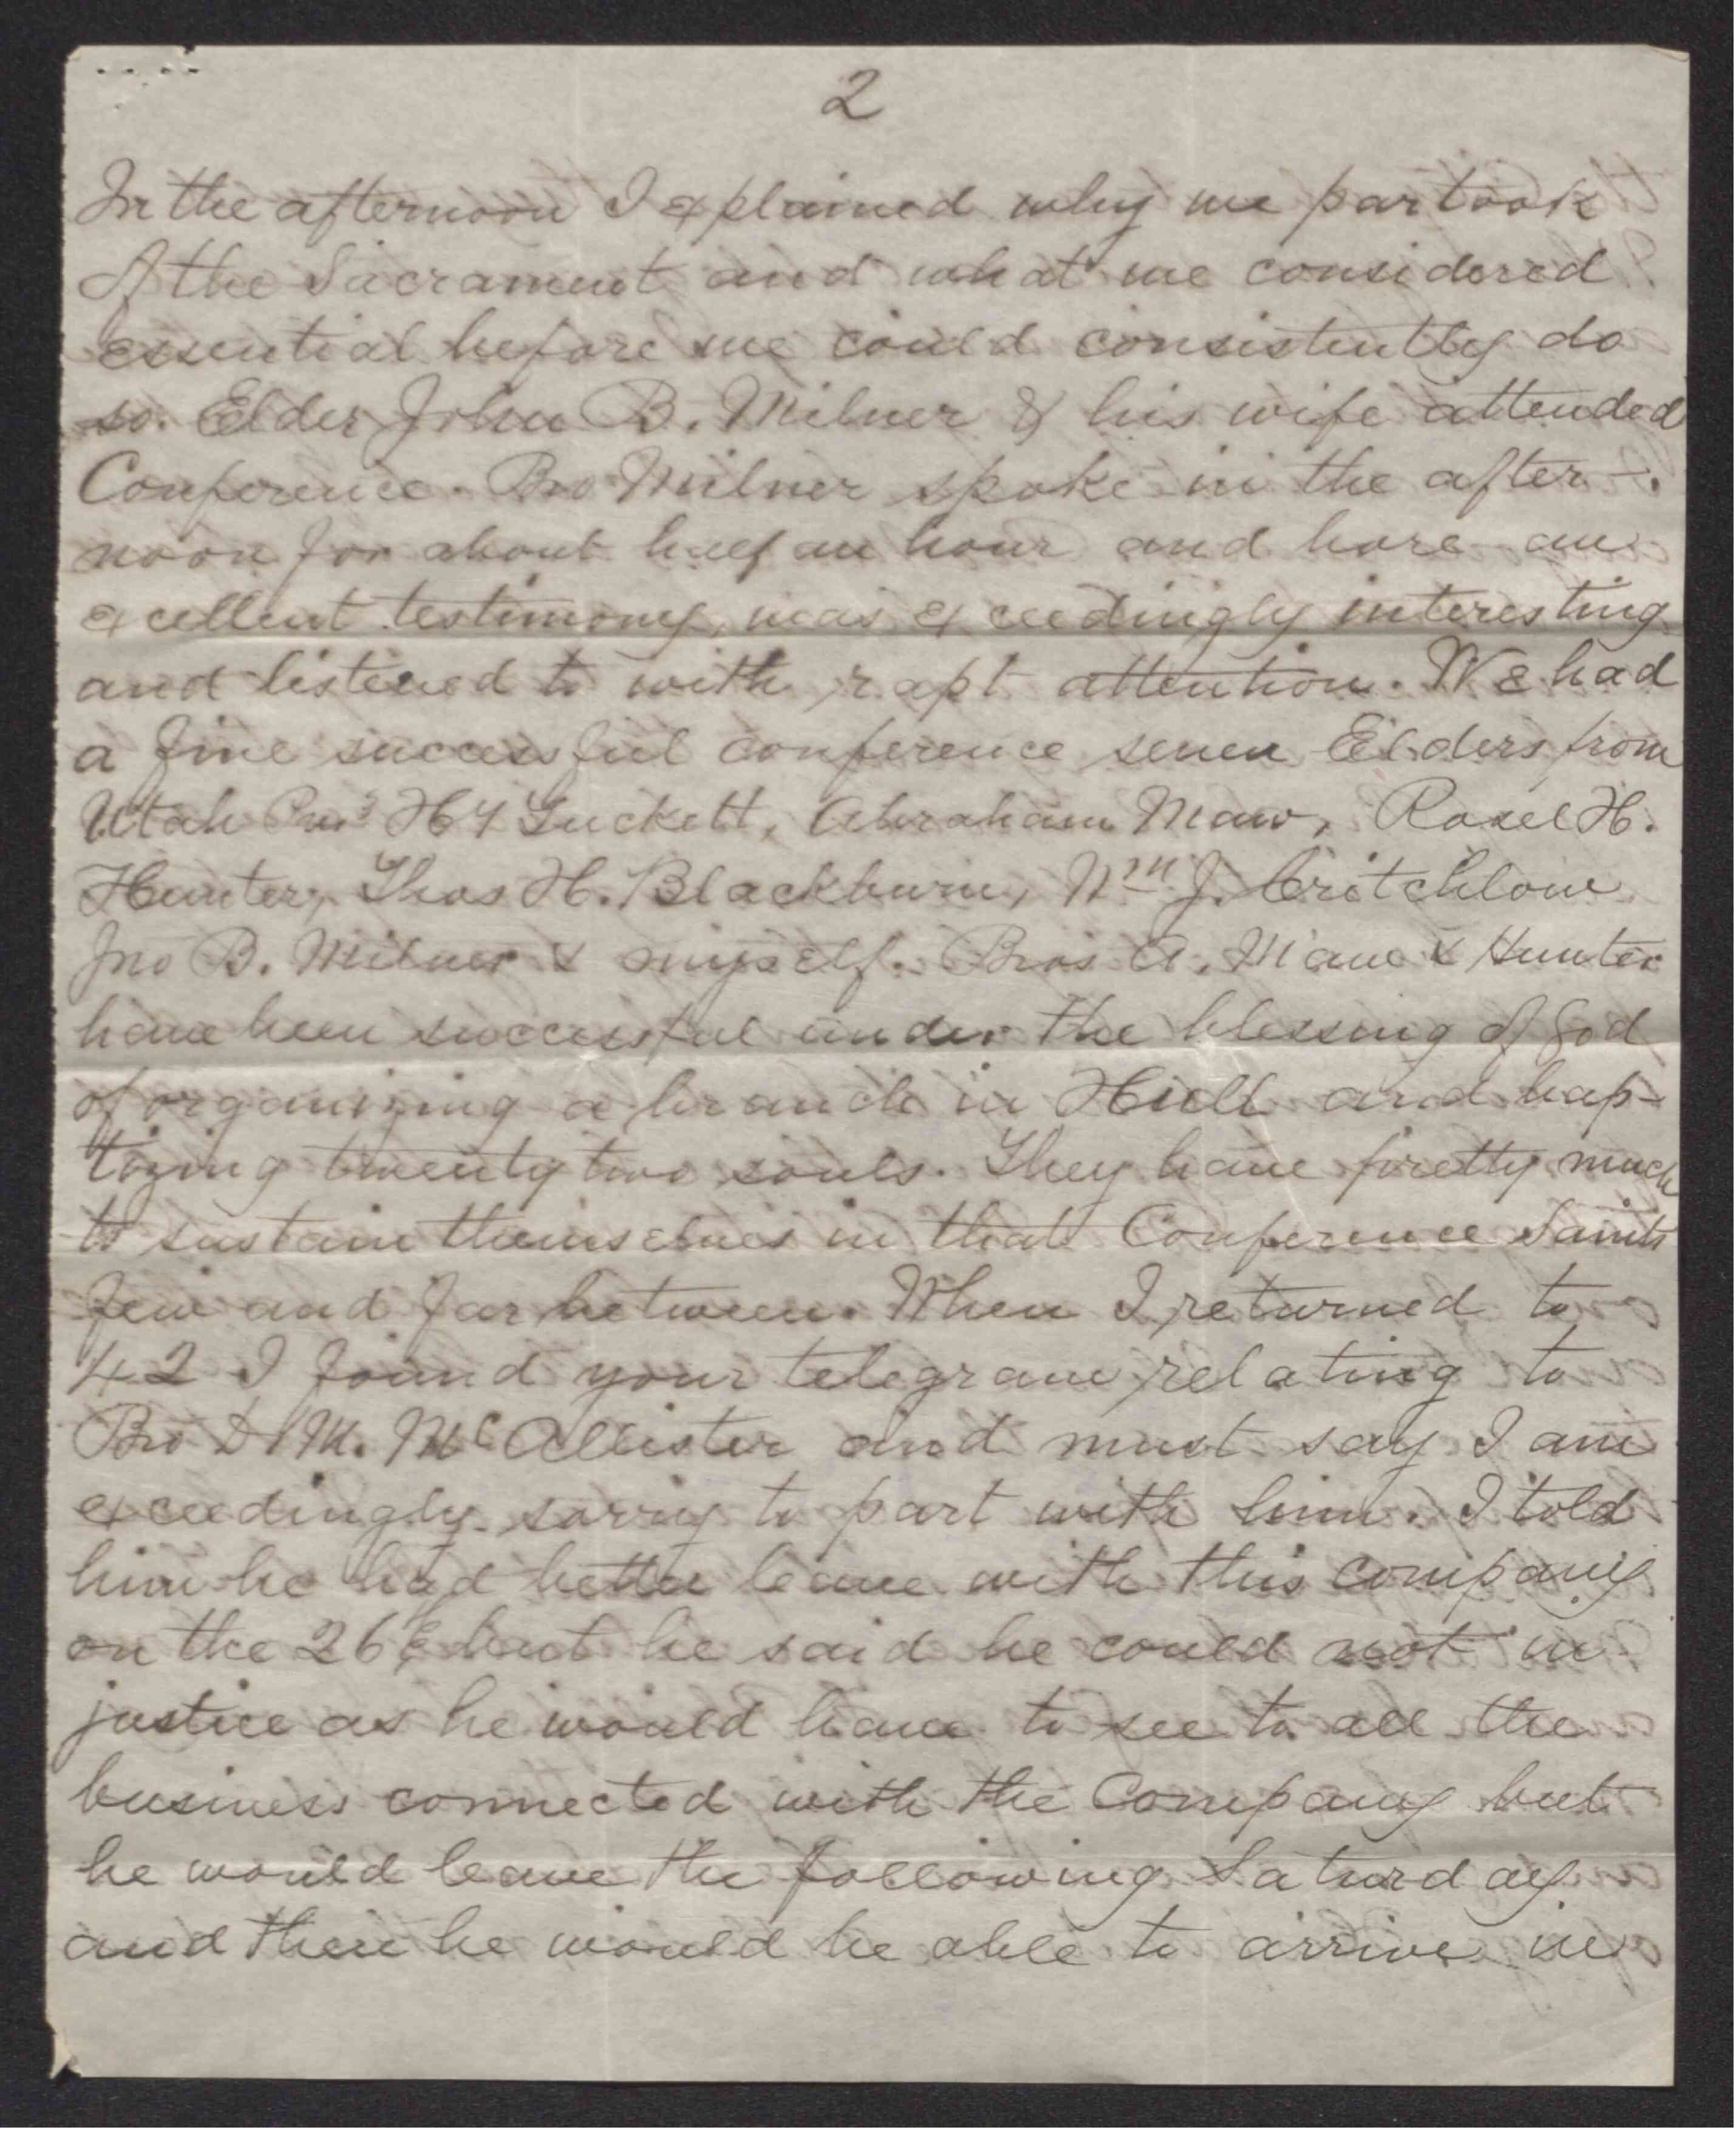 2
In the afternoon I explained why we partook
of the Sacrament and what we considered
essential before we could consistently do
so. Elder John B. Milner & his wife attended
Conference. Bro Milner spoke in the after-
noon for about half an hour and bore an
excellent testimony, was exceedingly interesting
and listened to with rapt attention. We had
a fine successful conference seven Elders from
Utah Pres Hy Luckett, Abraham Maw, Rozel H.
Hunter, Thos H. Blackburn, Wm J. Critchlow
Jno B. Milner & myself. Bros A. Maw & Hunter
have been successful under the blessing of God
of organizing a branch in Hull and bap-
tizing twenty two souls. They have pretty much
to sustain themselves in that Conference Saints
few and far between. When I returned to
42 I found your telegram relating to
Bro D. M. McAllister and must say I am
exceedingly sorry to part with him. I told
him he had better leave with this company
on the 26th but he said he could not in
justice as he would have to see to all the
business connected with the Company but
he would leave the following Saturday
and then he would be able to arrive in